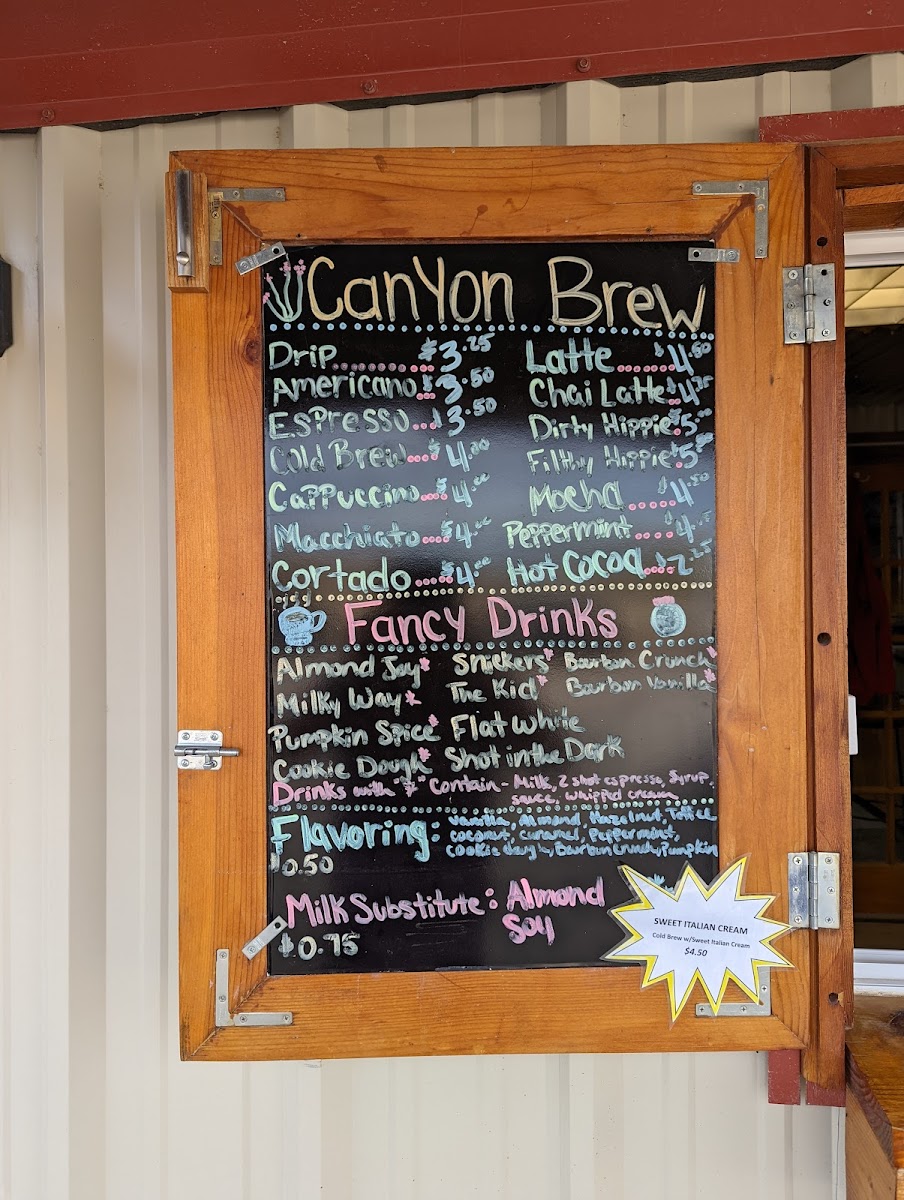 CanYon Brew
Drip........$3.25
Americano..$3.50
Espresso...$3.50
Cold Brew...$4.00
Cappuccino...$4.00
Macchiato...$4.00
Cortado....$4.00
Latte.....$4.50
Chai Latte..$4.75
Dirty Hippie.$5.00
Filthy Hippie.$5.50
Mocha....$4.50
Peppermint....$4.75
Hot Cocoa...$2.25
Fancy Drinks
Almond Joy* Snickers* Bourbon Crunch*
Milky Way* The Kid* Bourbon Vanilla*
Pumpkin Spice* Flat White
Cookie Dough* Shot in the Dark
Drinks with * Contain - Milk, 2 shot espresso, Syrup,
sauce, whipped cream
Flavoring: Vanilla, Almond, Hazelnut, Toffee
coconut, caramel, Peppermint,
cookie dough, Bourbon Crunch, Pumpkin
$0.50
Milk Substitute: Almond
Soy
$0.75
SWEET ITALIAN CREAM
Cold Brew w/Sweet Italian Cream
$4.50